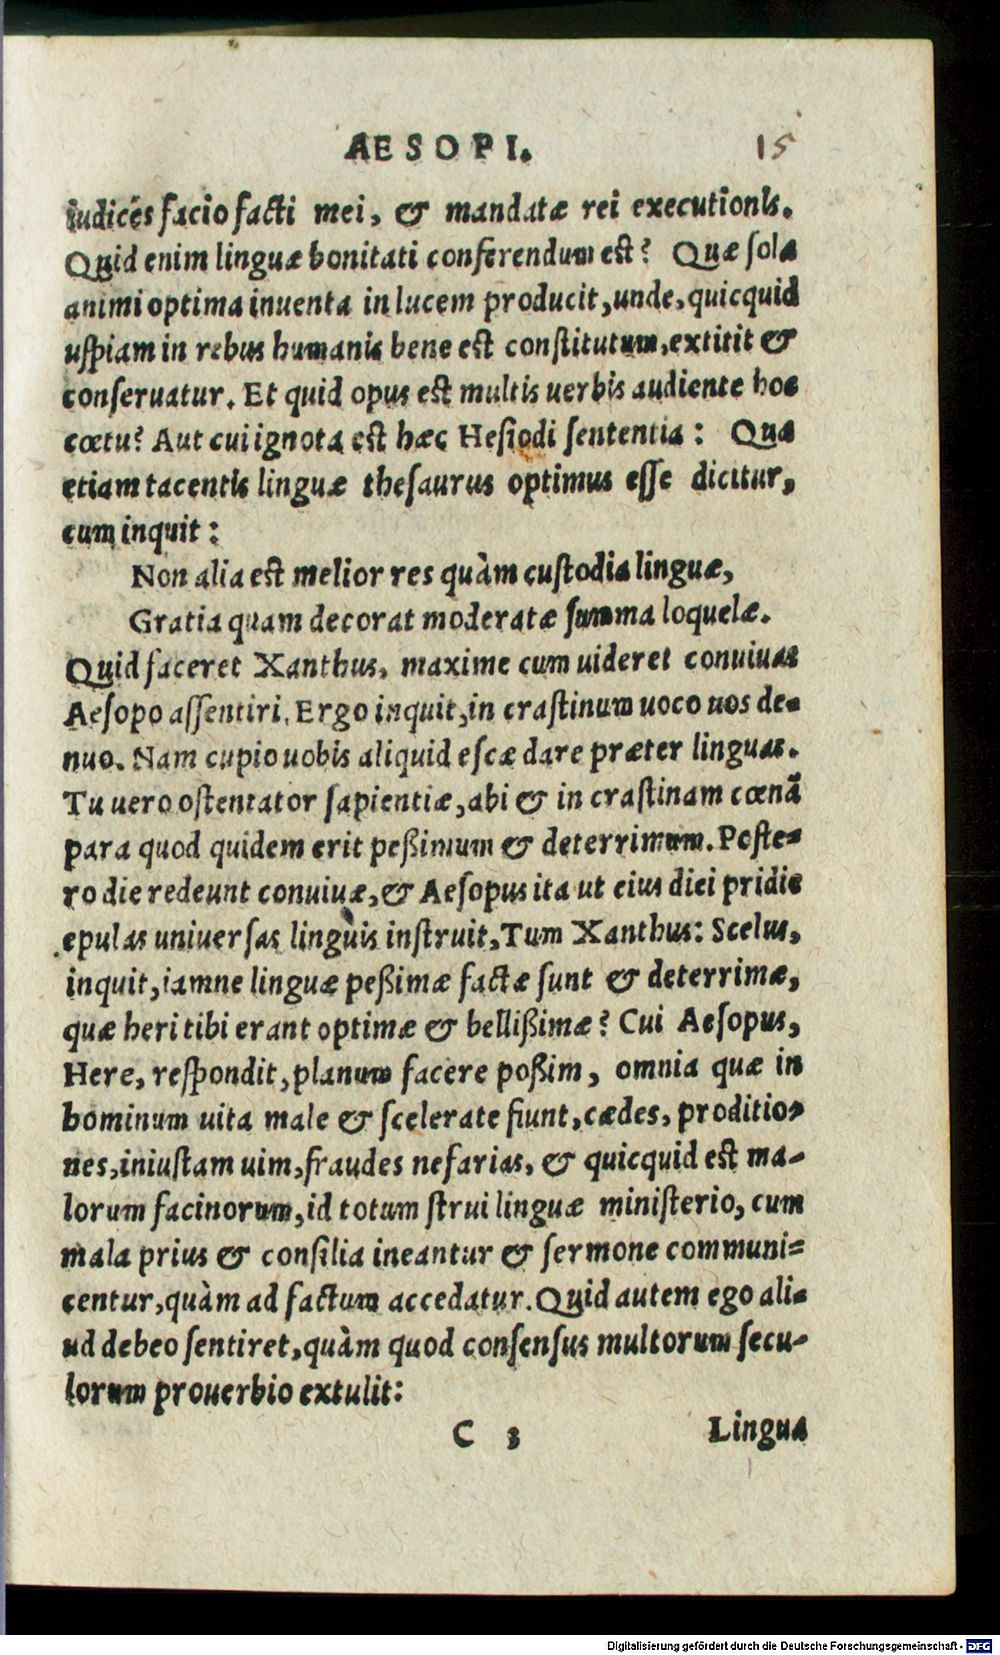 AESOPI. 15
iudices facio facti mei, & mandatæ rei executionis.
Quid enim linguæ bonitati conferendum est? Quæ sola
animi optima inuenta in lucem producit, unde, quicquid
uspiam in rebus humanis bene est constitutum, extitit &
conseruatur. Et quid opus est multis uerbis audiente hoc
cœtu? Aut cui ignota est hæc Hesiodi sententia: Qua
etiam tacentis linguæ thesaurus optimus esse dicitur,
cum inquit:
Non alia est melior res quàm custodia linguæ,
Gratia quam decorat moderatæ summa loquelæ.
Quid faceret Xanthus, maxime cum uideret conuiuas
Aesopo assentiri. Ergo inquit, in crastinum uoco uos de-
nuo. Nam cupio uobis aliquid escæ dare præter linguas.
Tu uero ostentator sapientiæ, abi & in crastinam cœnā
para quod quidem erit peßimum & deterrimum. Poste-
ro die redeunt conuiuæ, & Aesopus ita ut eius diei pridie
epulas uniuersas linguis instruit, Tum Xanthus: Scelus,
inquit, iamne linguæ peßimæ factæ sunt & deterrimæ,
quæ heri tibi erant optimæ & bellißimæ? Cui Aesopus,
Here, respondit, planum facere poßim, omnia quæ in
hominum uita male & scelerate fiunt, cædes, proditio-
nes, iniustam uim, fraudes nefarias, & quicquid est ma-
lorum facinorum, id totum strui linguæ ministerio, cum
mala prius & consilia ineantur & sermone communi-
centur, quàm ad factum accedatur. Quid autem ego ali-
ud debeo sentiret, quàm quod consensus multorum secu-
lorum prouerbio extulit:
C 3 Lingua
Digitalisierung gefördert durch die Deutsche Forschungsgemeinschaft - DFG